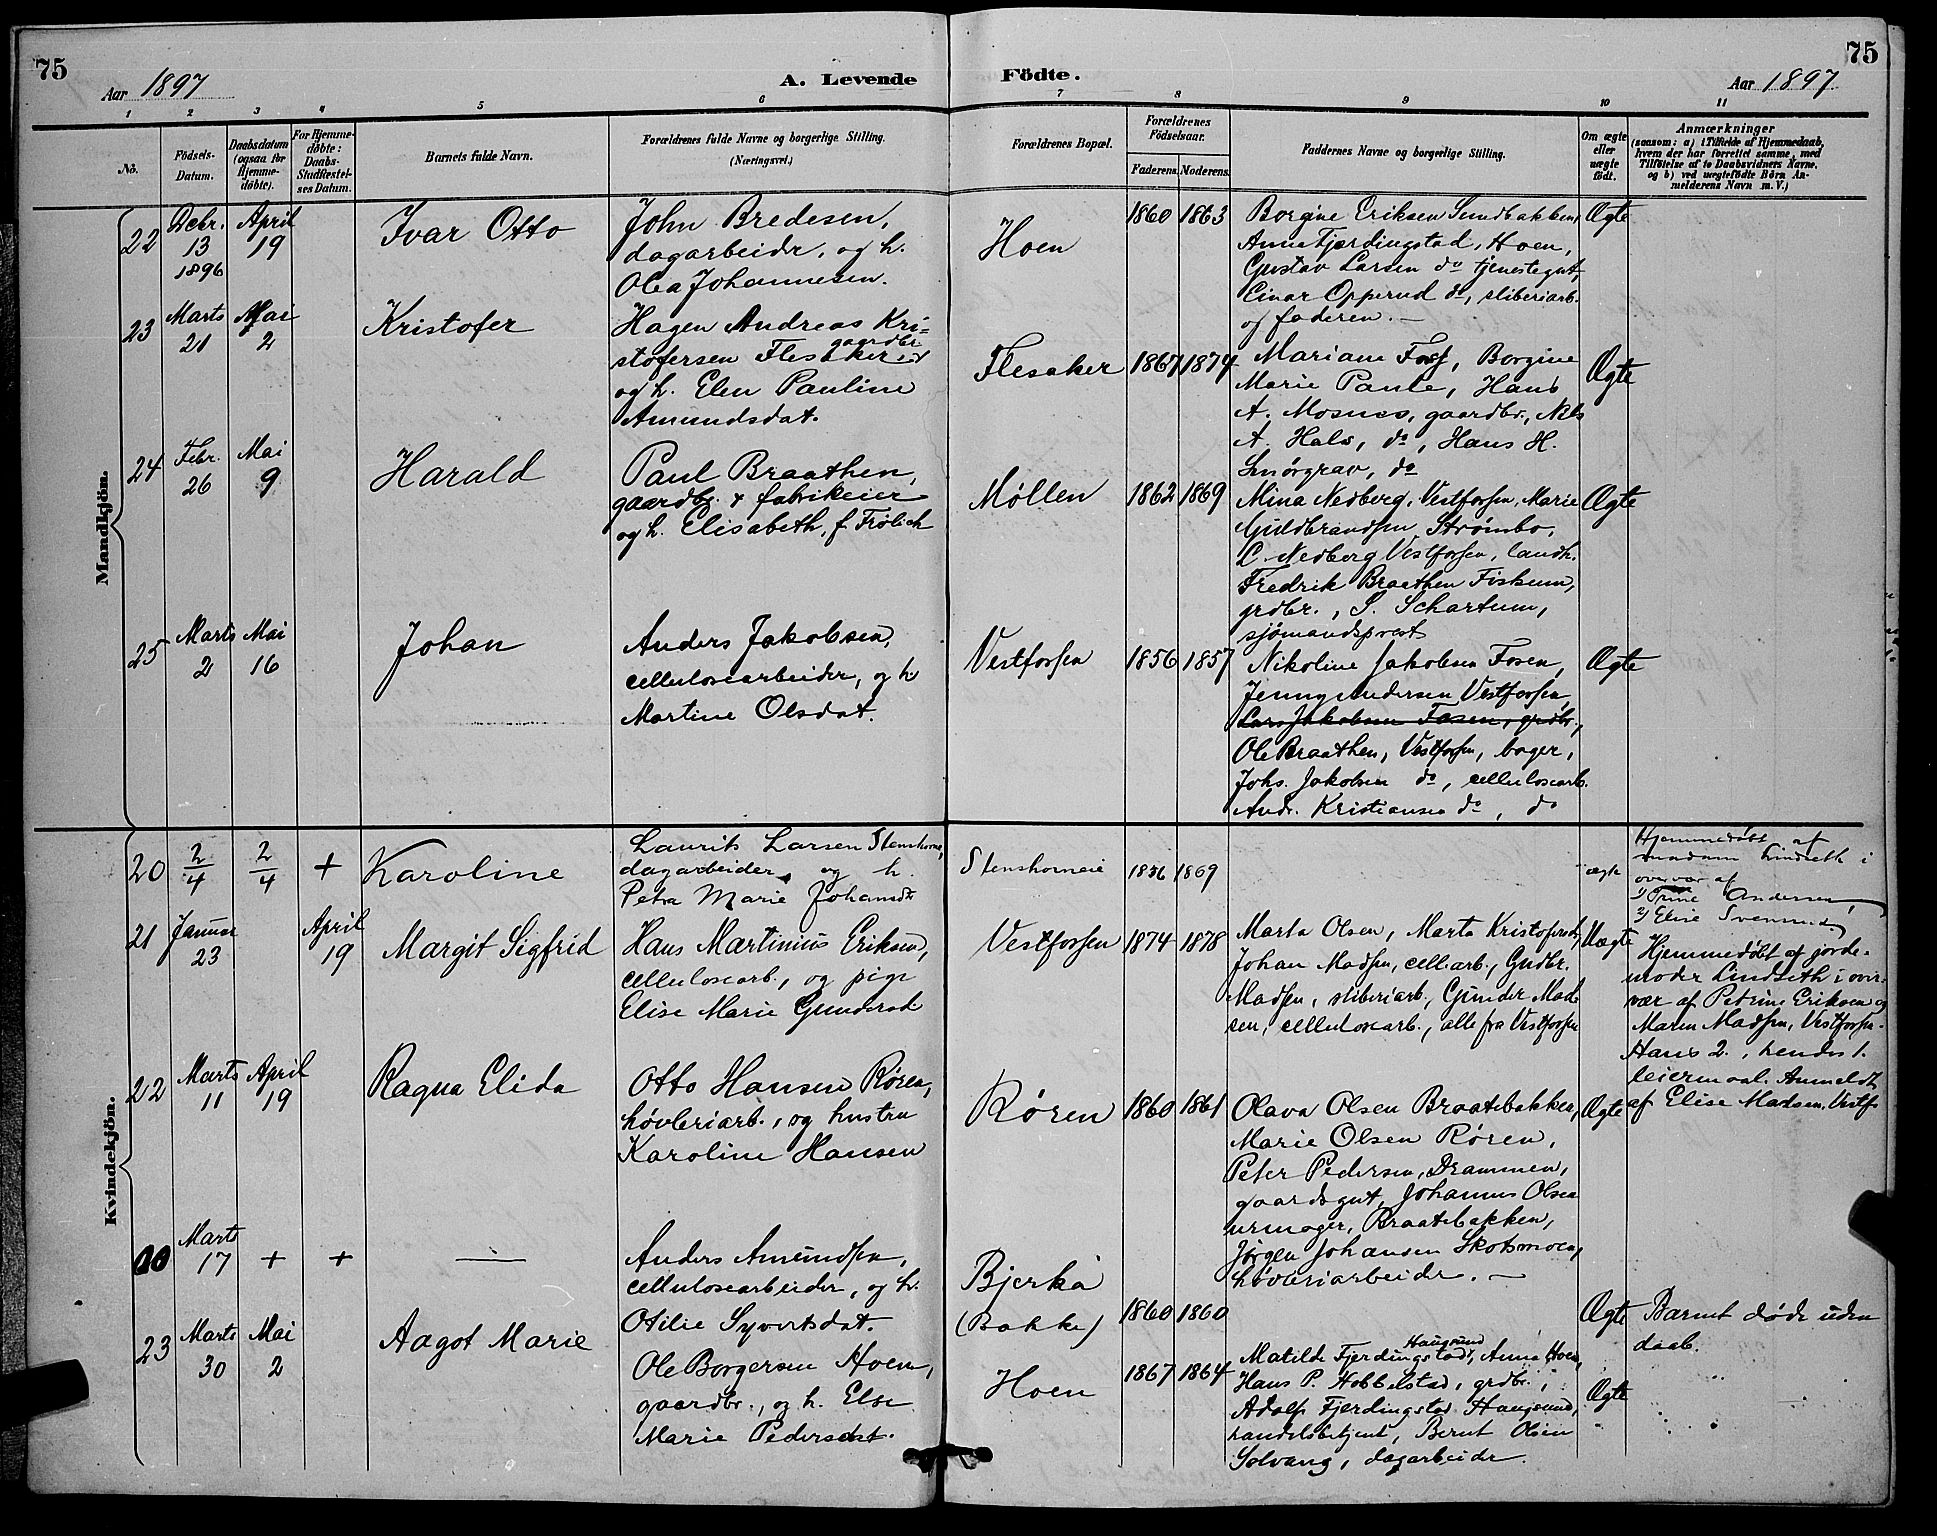 75
75
Aar 1897
A. Levende Födte.
Aar 1897
1 2 3 4 5 6 7 8 9 10 11
No.
Födsels-
Datum.
Daabsdatum
(ogsaa for
Hjemme-
döbte).
For Hjemme-
döbte:
Daabs-
Stadfæstel-
ses Datum.
Barnets fulde Navn.
Forældrenes fulde Navne og borgerlige Stilling.
(Næringsvei.)
Forældrenes Bopæl.
Forældrenes
Födselsaar.
Faderens. Moderens.
Faddernes Navne og borgerlige Stilling.
Om ægte
eller
uægte
födt.
Anmærkninger
(saasom: a) i Tilfælde af Hjemmedaab,
hvem der har forrettet samme, med
Tilföielse af to Daabsvidners Navne,
og b) ved uægtefödte Börn An-
melderens Navn m. V.)
Mandkjön.
22
Debr.
13
1896
April
19
Ivar Otto
John Bredesen,
dagarbeider, og h.
Olea Johannesen.
Hoen
1860 1863
Borgine Eriksen Sundbakken,
Anna Fjerdingstad, Hoen,
Gustav Larsen do tjenestegut,
Einar Opperud do, sliberiarb.
og faderen. —
Ægte
23
Marts
21
Mai
2
Kristofer
Hagen Andreas Kri=
stofersen Flesaker gaardbr.
og h. Elen Pauline
Amundsdat.
Flesaker
1867 1874
Mariane Foss, Borgine
Marie Paule, Hans
A. Mosnes, gaardbr., Nils
A. Hals, do, Hans H.
Smörgrav, do
Ægte
24
Febr.
26
Mai
9
Harald
Paul Braathen,
gaardbr. & fabrikeier
og h. Elisabeth, f. Frölich
Møllen
1862 1869
Mina Nedberg, Vestfossen, Marie
Guldbrandsen Strömbo,
C. Nedberg Vestfossen, landh.
Fredrik Braathen Fiskum,
grdbr., S. Schartum,
sjömandsprest
Ægte
25
Marts
2
Mai
16
Johan
Anders Jakobsen,
cellulosearbeider, og h
Martine Olsdat.
Vestfossen
1856 1857
Nikoline Jakobsen Fosen,
Jenny Andersen Vestfossen,
Lars Jakobsen Fosen, grdbr.,
Ole Braathen, Vestfossen, bager,
Johs. Jakobsen do, cellulosearb.
Andr. Kristiansen do, do
Ægte
Kvindekjön.
20
2/4
2/4
+
Karoline
Laurits Larsen Stenshorne,
dagarbeider og h.
Petra Marie Johansdt
Stenshorneie
1856 1869
ægte
Hjemmedöbt af
madam Lindseth i
overvær af
1) Trine Andersen,
2) Elise Svensrud
21
Januar
23
April
19
Margit Sigfrid
Hans Martinius Eriksen,
cellulosearb., og pige
Elise Marie Gundersd
Vestfossen
1874 1878
Marta Olsen, Marta Kristofersd,
Johan Madsen, cell.arb., Gudbr.
Madsen, sliberiarb., Gunder Mad-
sen, cellulosearb., alle fra Vestfossen
Uægte
Hjemmedöbt af jorde-
moder Lindseth i over-
vær af Petrine Eriksen og
Maren Madsen, Vestfossen.
Hans 2., hendes 1.
leiermaal. Anmeldt
af Elise Madsen, Vestfs
22
Marts
11
April
19
Ragna Elida
Otto Hansen Røren,
høvleriarb., og hustru
Karoline Hansen
Røren
1860 1861
Olava Olsen Braatebakken,
Marie Olsen Røren,
Peter Pedersen, Drammen,
gaardsgut, Johannes Olsen
urmager, Braatebakken,
Jörgen Johansen Skotsmoen,
høvleriarbeider. —
Ægte
Marts
17
+
+
—
Anders Amundsen,
cellulosearbeider, og h.
Otilie Syvertsdat.
Bjerkå
(Bakke)
1860 1860
Ægte
Barnet döde uden
daab.
23
Marts
30
Mai
2
Aagot Marie
Ole Borgersen Hoen,
gaardbr., og h. Else
Marie Pedersdat.
Hoen
1867 1864
Matilde Fjerdingstad, Haugsund, Anna Hoen,
Hans P. Hobbelstad, grdbr.,
Adolf Fjerdingstad Haugsund,
handelsbetjent, Bernt Olsen
Solvang, dagarbeider.
Ægte